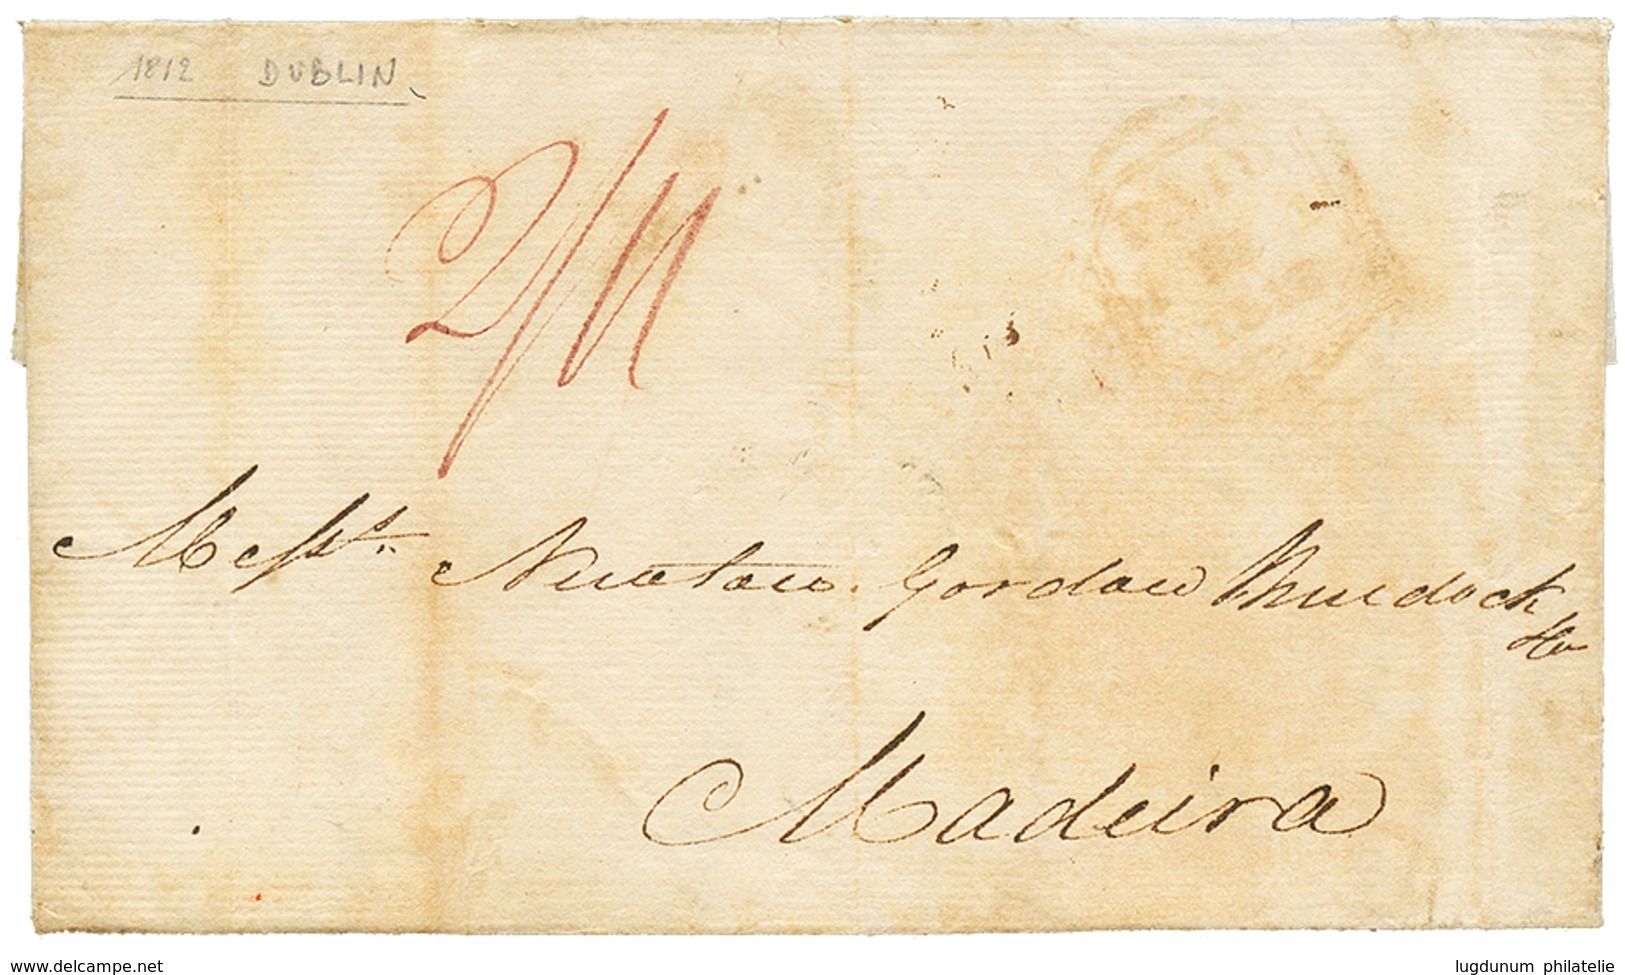 1812 DUBLIN
2/11
Messrs. Newton Gordon Murdock
& Co
Madeira
www.delcampe.net
lugdunum philatelie